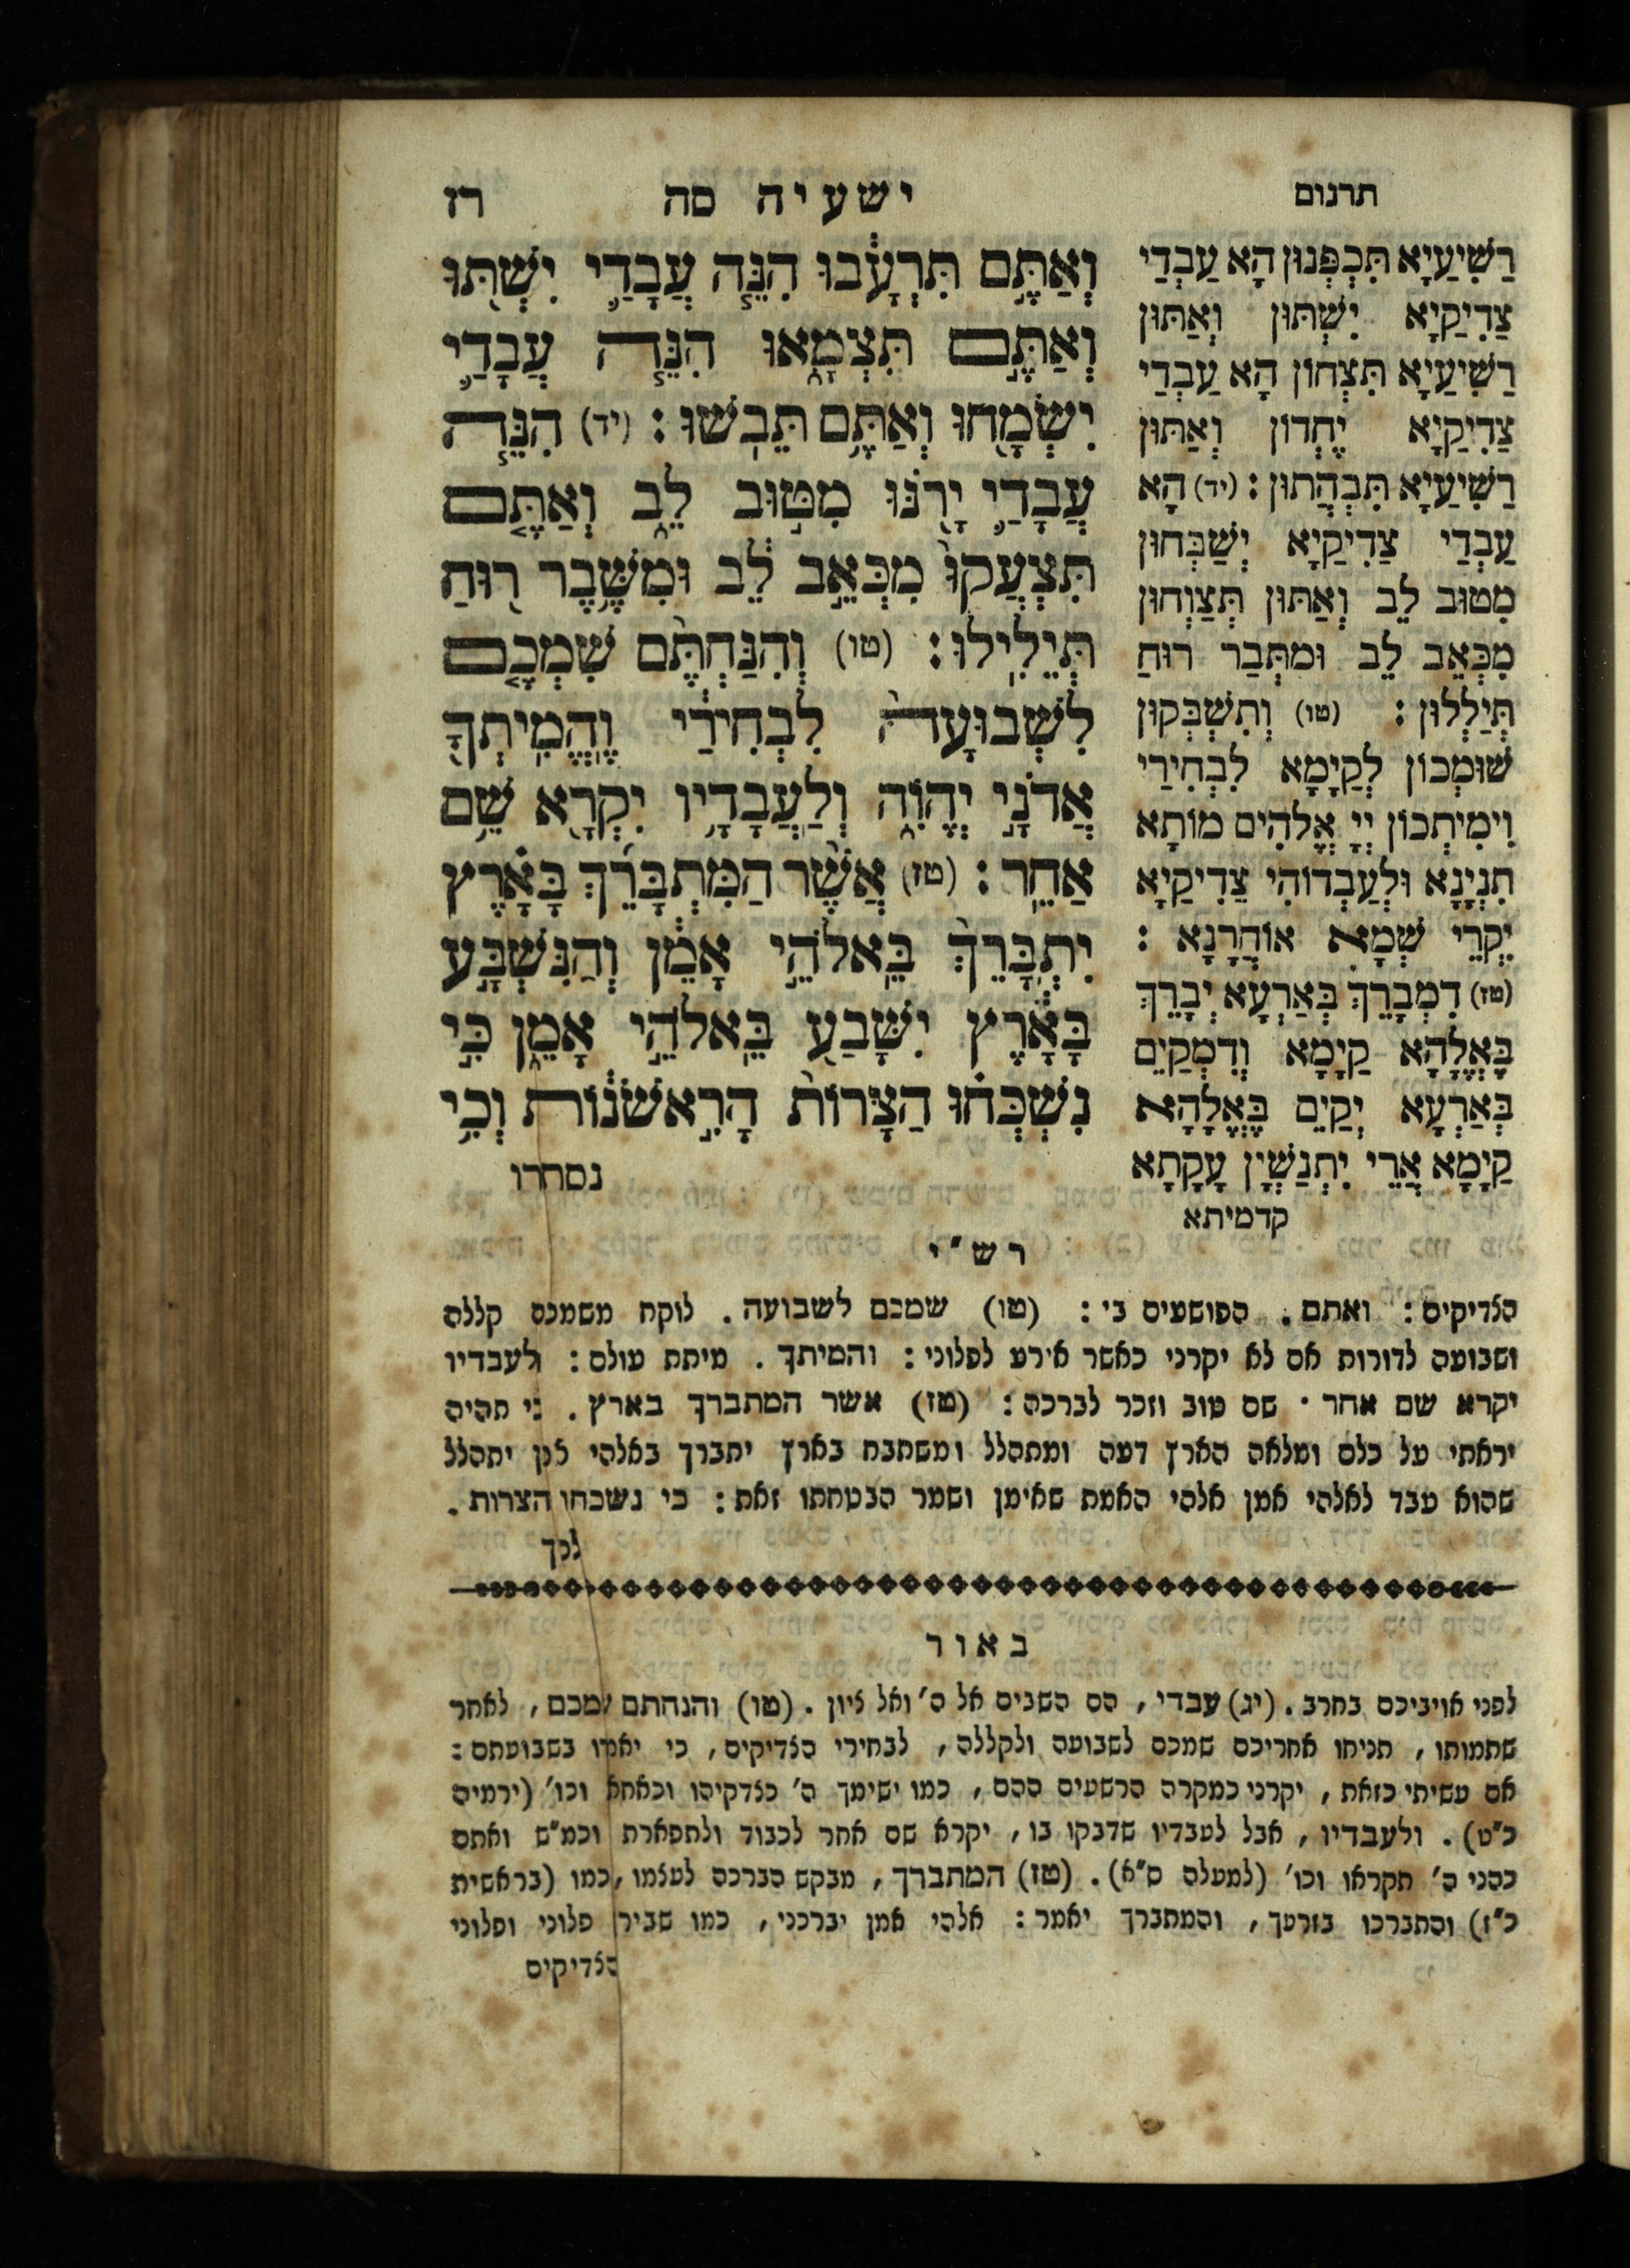 תרגום
ישעיה סה
רז
רַשִׁיעַיָא תִּכְפְּנוּן הָא עַבְדַי
צַדִיקַיָא יִשְׁתּוּן וְאַתּוּן
רַשִׁיעַיָא תִּצְחוֹן הָא עַבְדַי
צַדִיקַיָא יֶחְדוֹן וְאַתּוּן
רַשִׁיעַיָא תִּבְהֲתוּן׃ (יד) הָא
עַבְדַי צַדִיקַיָא יְשַׁבְּחוּן
מִטוּב לֵב וְאַתּוּן תְּצַוְחוּן
מִכְּאֵב לֵב וּמִתְּבַר רוּחַ
תְּיַלְלוּן׃ (טו) וְתִשְׁבְּקוּן
שׁוּמְכוֹן לְקַיָמָא לִבְחִירַי
וִימִיתְכוֹן יְיָ אֱלֹהִים מוֹתָא
תִנְיָנָא וּלְעַבְדוֹהִי צַדִיקַיָא
יִקְרֵי שְׁמָא אוֹחֲרָנָא׃
(טז) דִמְבָרֵךְ בְּאַרְעָא יְבָרֵךְ
בֶּאֱלָהָא קַיָמָא וְדִמְקַיֵם
בְּאַרְעָא יְקַיֵם בֶּאֱלָהָא
קַיָמָא אֲרֵי יִתְנַשְׁיָן עָקָתָא
קדמיתא
וְאַתֶּ֣ם תִּרְעָ֔בוּ הִנֵּ֧ה עֲבָדַ֛י יִשְׁתּ֖וּ
וְאַתֶּ֣ם תִּצְמָ֑אוּ הִנֵּ֧ה עֲבָדַ֛י
יִשְׂמָ֖חוּ וְאַתֶּ֥ם תֵּבֹֽשׁוּ׃ (יד) הִנֵּ֧ה
עֲבָדַ֛י יָרֹ֖נּוּ מִטּ֣וּב לֵ֑ב וְאַתֶּ֤ם
תִּצְעֲקוּ֙ מִכְּאֵ֣ב לֵ֔ב וּמִשֶּׁ֥בֶר ר֖וּחַ
תְּיֵלִֽילוּ׃ (טו) וְהִנַּחְתֶּ֨ם שִׁמְכֶ֤ם
לִשְׁבוּעָה֙ לִבְחִירַ֔י וֶהֱמִֽיתְךָ֖
אֲדֹנָ֣י יֱהֹוִ֑ה וְלַעֲבָדָ֥יו יִקְרָ֖א שֵׁ֥ם
אַחֵֽר׃ (טז) אֲשֶׁ֨ר הַמִּתְבָּרֵ֜ךְ בָּאָ֗רֶץ
יִתְבָּרֵךְ֙ בֵּֽאלֹהֵ֣י אָמֵ֔ן וְהַנִּשְׁבָּ֣ע
בָּאָ֔רֶץ יִשָּׁבַ֖ע בֵּֽאלֹהֵ֣י אָמֵ֑ן כִּ֣י
נִשְׁכְּח֗וּ הַצָּרוֹת֙ הָרִ֣אשֹׁנ֔וֹת וְכִ֥י
נסתרו
רש״י
הצדיקים: ואתם. הפושעים בי: (טו) שמכם לשבועה. לוקח משמכם קללה
ושבועה לדורות אם לא יקרני כאשר אירע לפלוני: והמיתך. מיתת עולם: ולעבדיו
יקרא שם אחר · שם טוב וזכר לברכה: (טז) אשר המתברך בארץ. כי תהיה
יראתי על כלם ומלאה הארץ דעה ומתהלל ומשתבח בארץ יתברך באלהי אמן יתהלל
שהוא עבד לאלהי אמן אלהי האמת שאימן ושמר הבטחתו זאת: כי נשכחו הצרות.
לכך
באור
לפני אויביכם בחרב. (יג) עבדי, הם השבים אל ה׳ ואל ציון. (טו) והנחתם שמכם, לאחר
שתמותו, תניחו אחריכם שמכם לשבועה ולקללה, לבחירי הצדיקים, כי יאמרו בשבועתם:
אם עשיתי כזאת, יקרני כמקרה הרשעים ההם, כמו ישימך ה׳ כצדקיהו וכאחאב וכו׳ (ירמיה
כ״ט). ולעבדיו, אבל לעבדיו שדבקו בו, יקרא שם אחר לכבוד ולתפארת וכמ״ש ואתם
כהני ה׳ תקראו וכו׳ (למעלה ס״א). (טז) המתברך, מבקש הברכה לעצמו, כמו (בראשית
כ״ו) והתברכו בזרעך, והמתברך יאמר: אלהי אמן יברכני, כמו שבירך פלוני ופלוני
הצדיקים